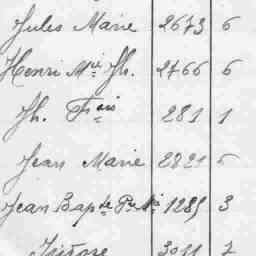 Jules Marie 2673 6
Henri Mie Jh. 2766 6
Jh. Fçois 281 1
Jean Marie 2821 5
Jean Bapte Pre Mie 1285 3
Isidore 3011 7